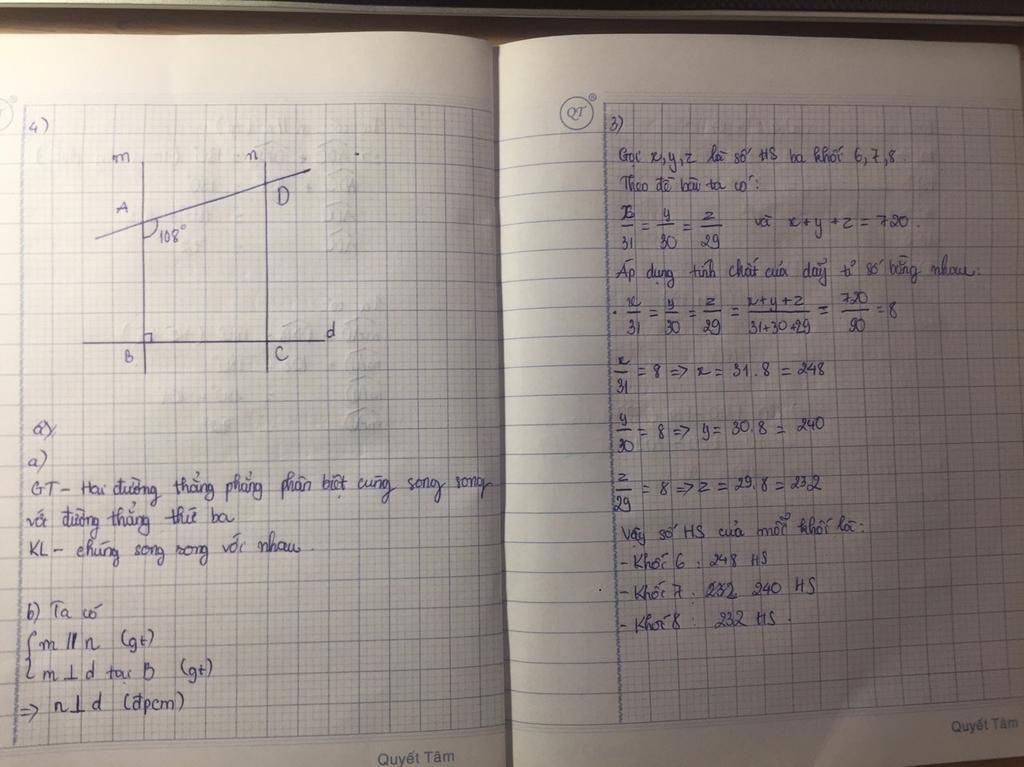 4)
m
n
A
D
108°
B
C
d
a)
a)
GT - Hai đường thẳng phẳng phân biệt cùng song song
với đường thẳng thứ ba
KL - chúng song song với nhau.
b) Ta có
{ m // n (gt)
m ⊥ d tại B (gt)
=> n ⊥ d (đpcm)
Quyết Tâm
QT
3)
Gọi x,y,z là số HS ba khối 6,7,8.
Theo đề bài ta có:
x/31 = y/30 = z/29 và x+y+z = 720.
Áp dụng tính chất của dãy tỉ số bằng nhau:
x/31 = y/30 = z/29 = x+y+z/31+30+29 = 720/90 = 8
x/31 = 8 => x = 31.8 = 248
y/30 = 8 => y = 30.8 = 240
z/29 = 8 => z = 29.8 = 232
Vậy số HS của mỗi khối là:
- Khối 6 : 248 HS
- Khối 7 : 232 240 HS
- Khối 8 : 232 HS.
Quyết Tâm